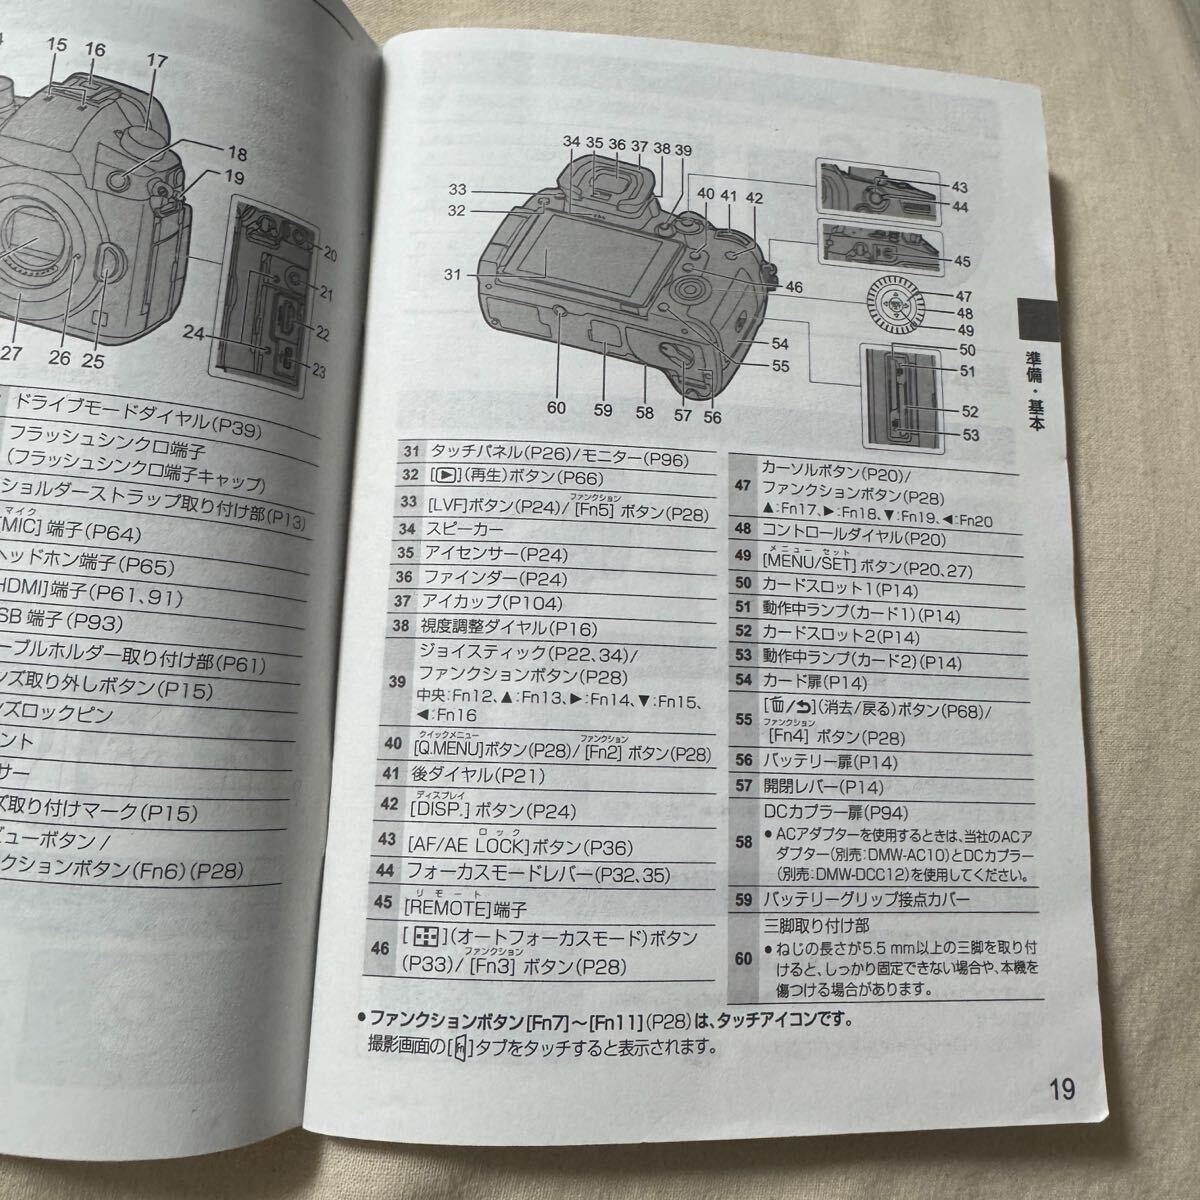 15
16
17
18
19
20
21
22
23
24
25
26
27
ドライブモードダイヤル(P39)
フラッシュシンクロ端子
(フラッシュシンクロ端子キャップ)
ショルダーストラップ取り付け部(P13)
マイク
[MIC] 端子(P64)
ヘッドホン端子(P65)
HDMI]端子(P61、91)
SB 端子(P93)
ーブルホルダー取り付け部(P61)
ンズ取り外しボタン(P15)
ンズロックピン
ント
サー
ズ取り付けマーク(P15)
ビューボタン /
クションボタン(Fn6)(P28)
34 35 36 37 38 39
33
32
31
40 41 42
43
44
45
46
47
48
49
50
51
52
53
54
55
60 59 58 57 56
31 タッチパネル(P26)/モニター(P96)
32 [▶](再生)ボタン(P66)
ファンクション
33 [LVF]ボタン(P24)/ [Fn5] ボタン(P28)
34 スピーカー
35 アイセンサー(P24)
36 ファインダー(P24)
37 アイカップ(P104)
38 視度調整ダイヤル(P16)
39 ジョイスティック(P22、34)/
ファンクションボタン(P28)
中央:Fn12、▲:Fn13、▶:Fn14、▼:Fn15、
◀:Fn16
クイックメニュー ファンクション
40 [Q.MENU]ボタン(P28)/ [Fn2] ボタン(P28)
41 後ダイヤル(P21)
ディスプレイ
42 [DISP.] ボタン(P24)
ロック
43 [AF/AE LOCK]ボタン(P36)
44 フォーカスモードレバー(P32、35)
リモート
45 [REMOTE]端子
46 [ ](オートフォーカスモード)ボタン
ファンクション
(P33)/ [Fn3] ボタン(P28)
47 カーソルボタン(P20)/
ファンクションボタン(P28)
▲:Fn17、▶:Fn18、▼:Fn19、◀:Fn20
48 コントロールダイヤル(P20)
メニュー セット
49 [MENU/SET] ボタン(P20、27)
50 カードスロット1(P14)
51 動作中ランプ(カード1)(P14)
52 カードスロット2(P14)
53 動作中ランプ(カード2)(P14)
54 カード扉(P14)
55 [ / ](消去/戻る)ボタン(P68)/
ファンクション
[Fn4] ボタン(P28)
56 バッテリー扉(P14)
57 開閉レバー(P14)
58 DCカプラー扉(P94)
● ACアダプターを使用するときは、当社のACア
ダプター(別売:DMW-AC10)とDCカプラー
(別売:DMW-DCC12)を使用してください。
59 バッテリーグリップ接点カバー
60 三脚取り付け部
● ねじの長さが5.5 mm以上の三脚を取り付
けると、しっかり固定できない場合や、本機を
傷つける場合があります。
● ファンクションボタン[Fn7]~[Fn11](P28)は、タッチアイコンです。
撮影画面の[Fn]タブをタッチすると表示されます。
準備・基本
19